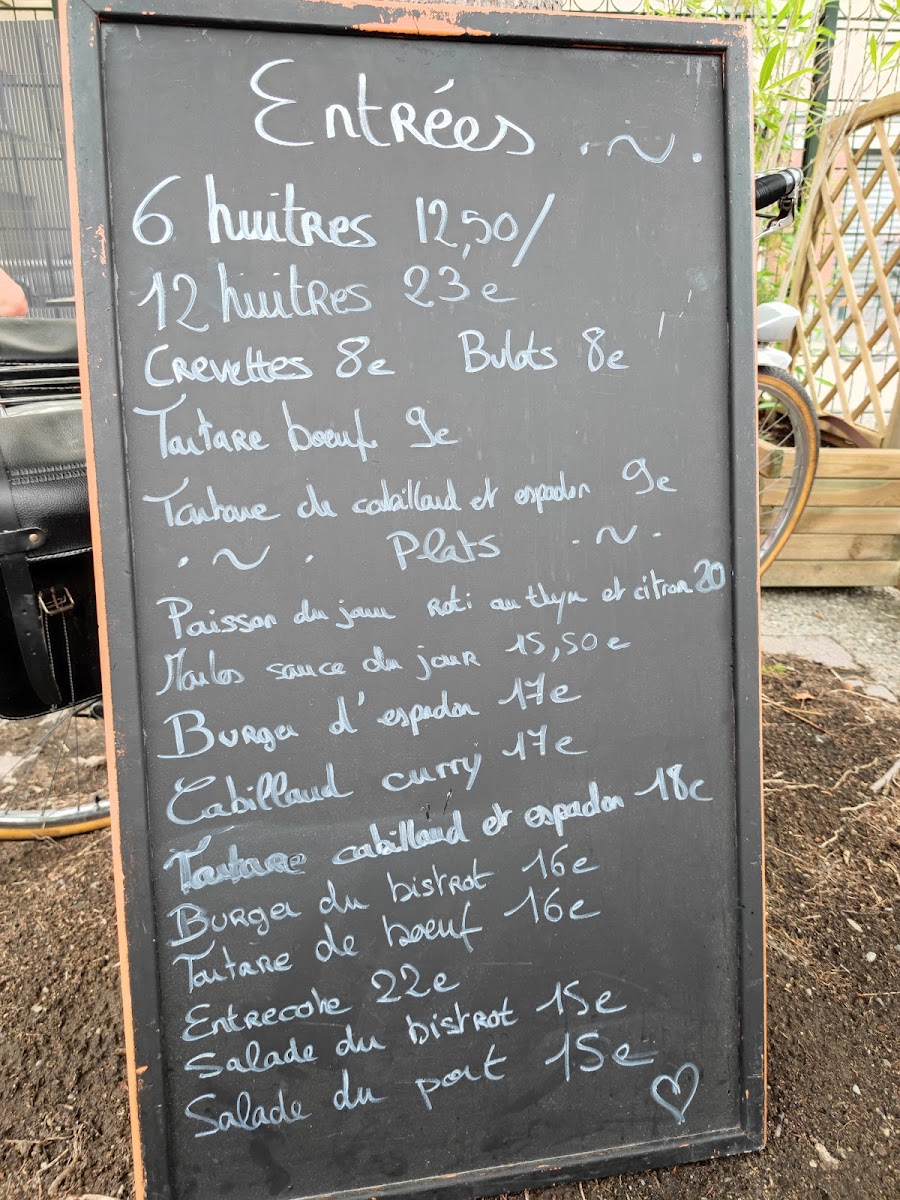 Entrées
6 huitres 12,50/
12 huitres 23e
Crevettes 8e Bulots 8e
Tartare boeuf 9e
Tartare de cabillaud et espadon 9e
Plats
Poisson du jour roti au thym et citron 20
Moules sauce du jour 15,50e
Burger d'espadon 17e
Cabillaud curry 17e
Tartare cabillaud et espadon 18e
Burger du bistrot 16e
Tartare de boeuf 16e
Entrecote 22e
Salade du bistrot 15e
Salade du port 15e